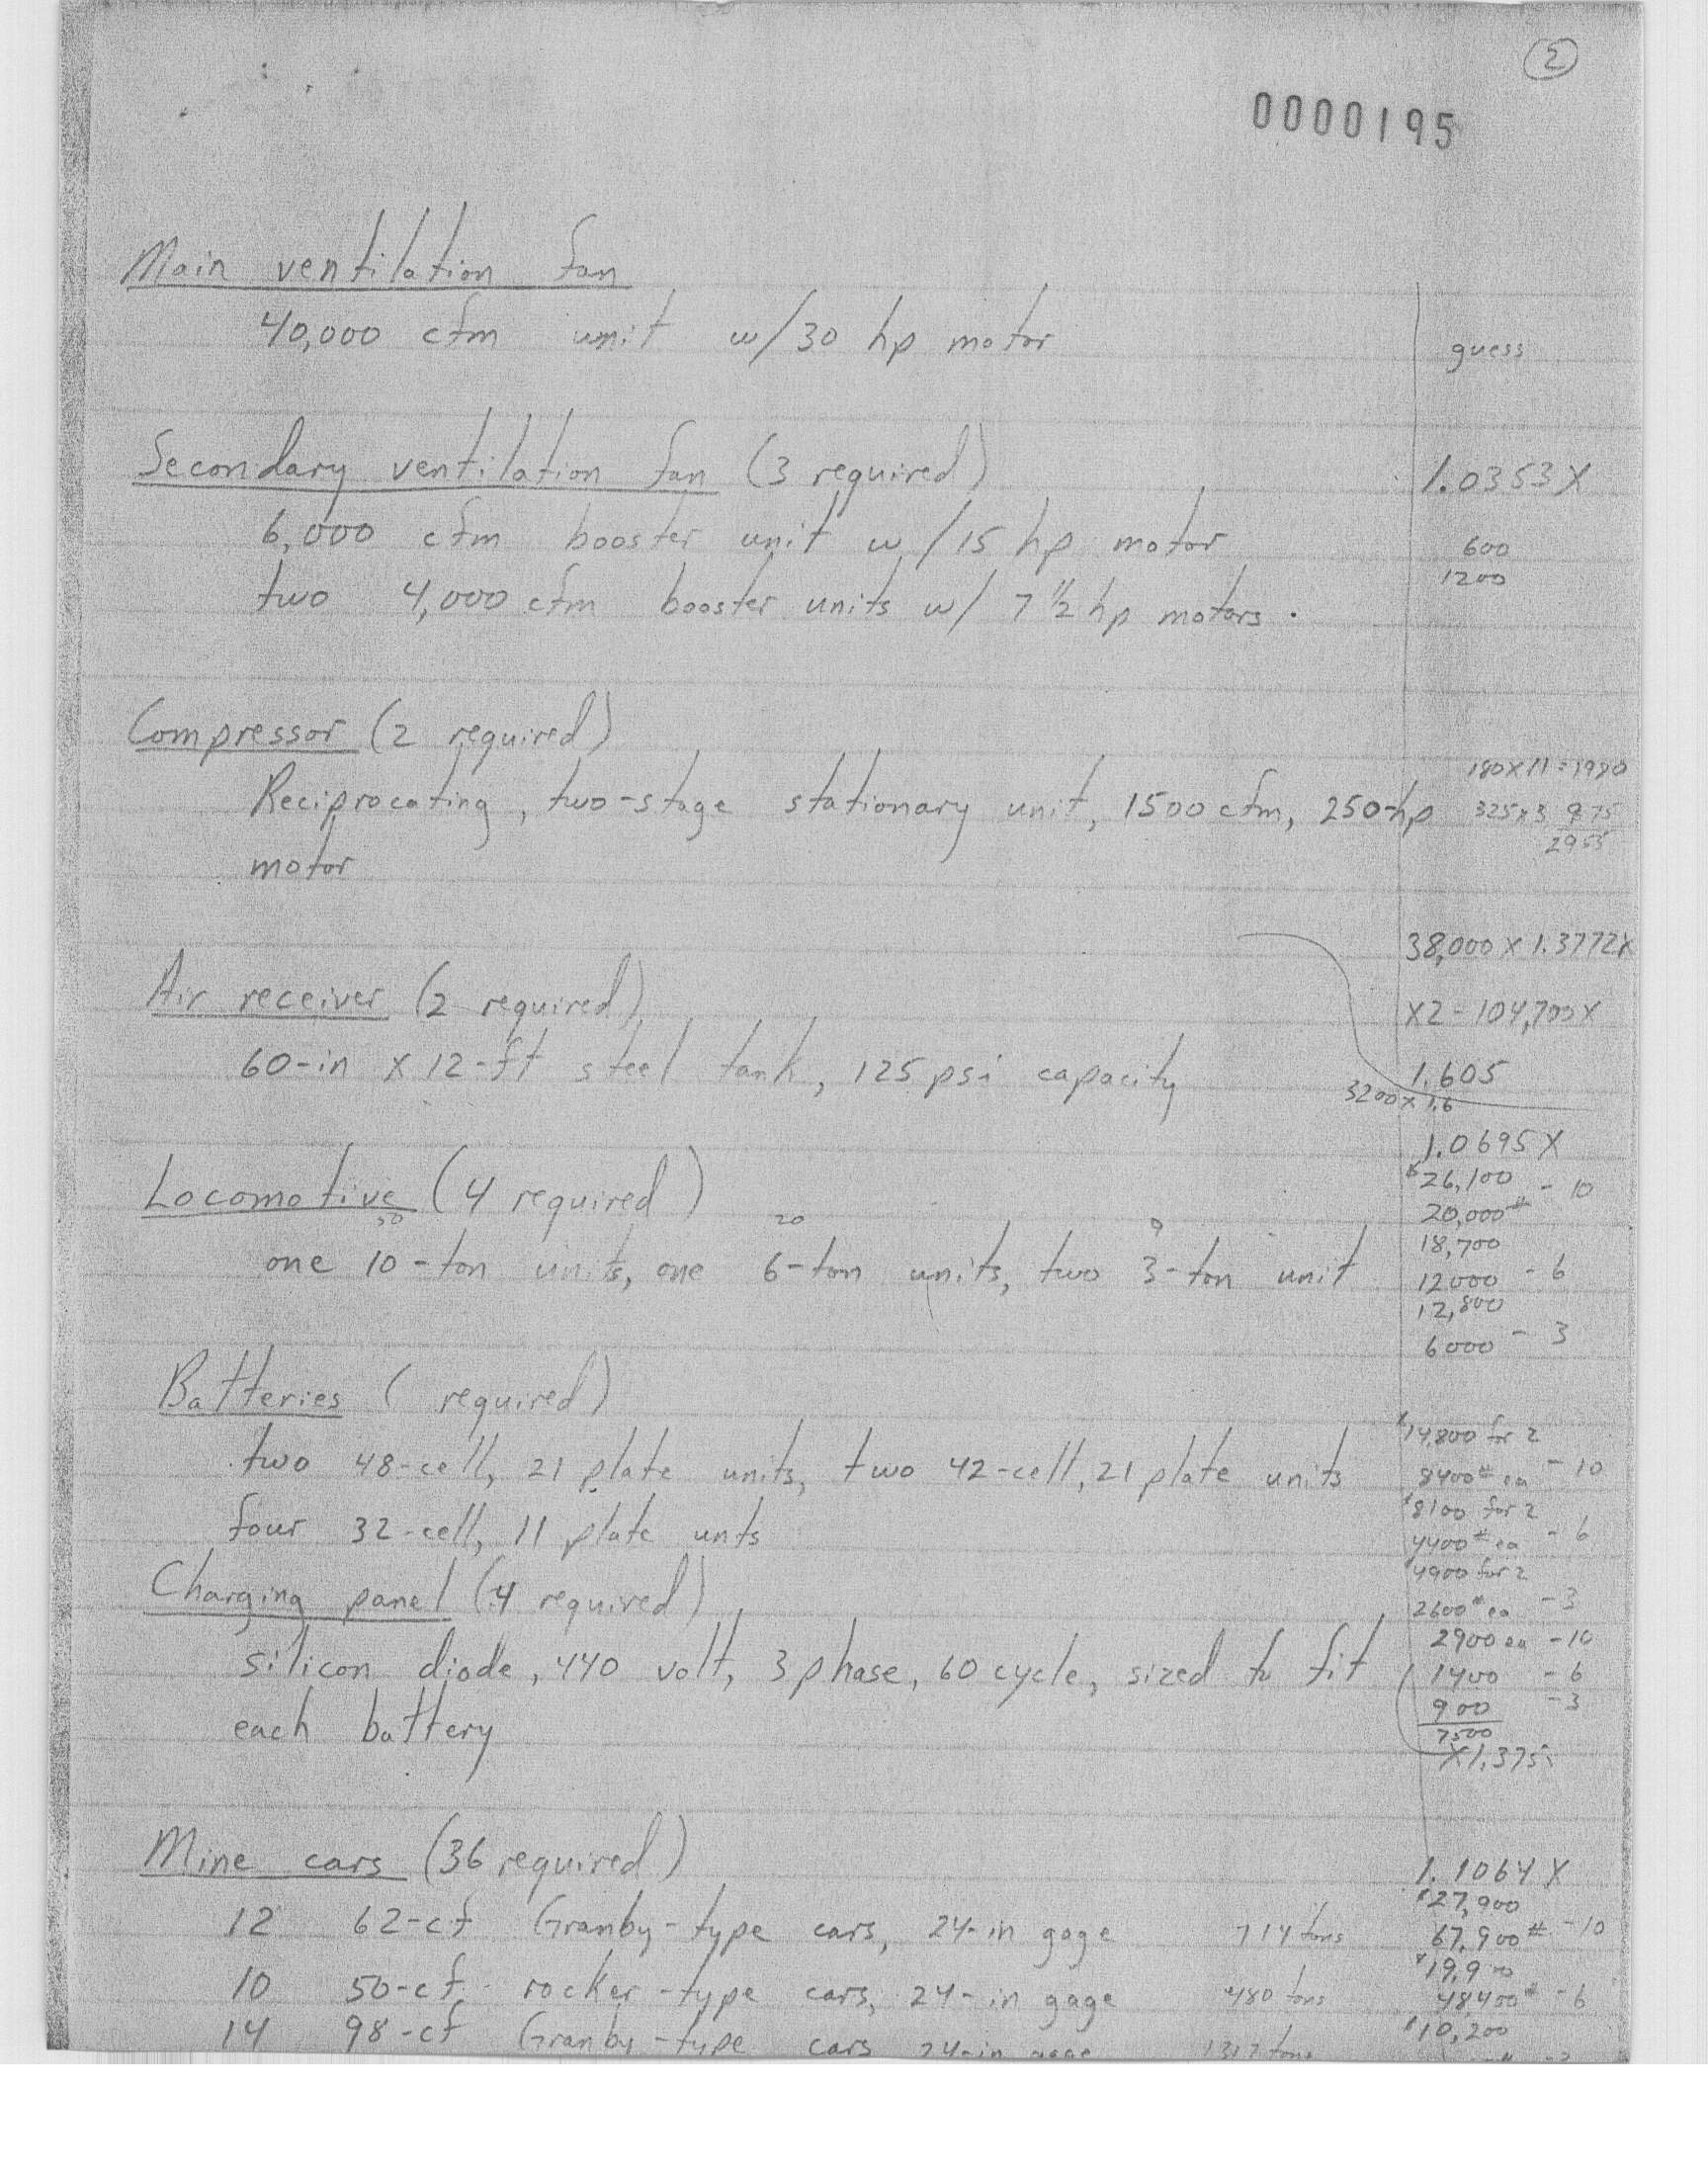 2
0000195
Main ventilation fan
40,000 cfm unit w/30 hp motor
guess
Secondary ventilation fan (3 required)
1.0353X
6,000 cfm booster unit w/15 hp motor
600
1200
two 4,000 cfm booster units w/ 7 1/2 hp motors.
Compressor (2 required)
180X11=1980
Reciprocating, two-stage stationary unit, 1500 cfm, 250-hp
325x3 975
2955
motor
38,000 x 1.3772X
Air receiver (2 required)
X2 - 104,700X
60-in X 12-ft steel tank, 125 psi capacity
1.605
3200 x 1.6
1.0695X
Locomotive (4 required)
$26,100
20,000# - 10
30 20 9
one 10-ton units, one 6-ton units, two 3-ton unit
18,700
12000 - 6
12,800
6000 - 3
Batteries ( required)
$14,800 for 2
two 48-cell, 21 plate units, two 42-cell, 21 plate units
8400# ea - 10
$8100 for 2
four 32-cell, 11 plate units
4400# ea - 6
$4900 for 2
Charging panel (4 required)
2600# ea - 3
2900 ea - 10
silicon diode, 440 volt, 3 phase, 60 cycle, sized to fit
1400 - 6
900 - 3
each battery
7500
X1.375
Mine cars (36 required)
1.1064X
$27,900
12 62-cf Granby-type cars, 24-in gage 714 tons
67,900# - 10
$19,900
10 50-cf rocker-type cars, 24-in gage 480 tons
48400# - 6
$10,200
14 98-cf Granby-type cars 24-in gage tons